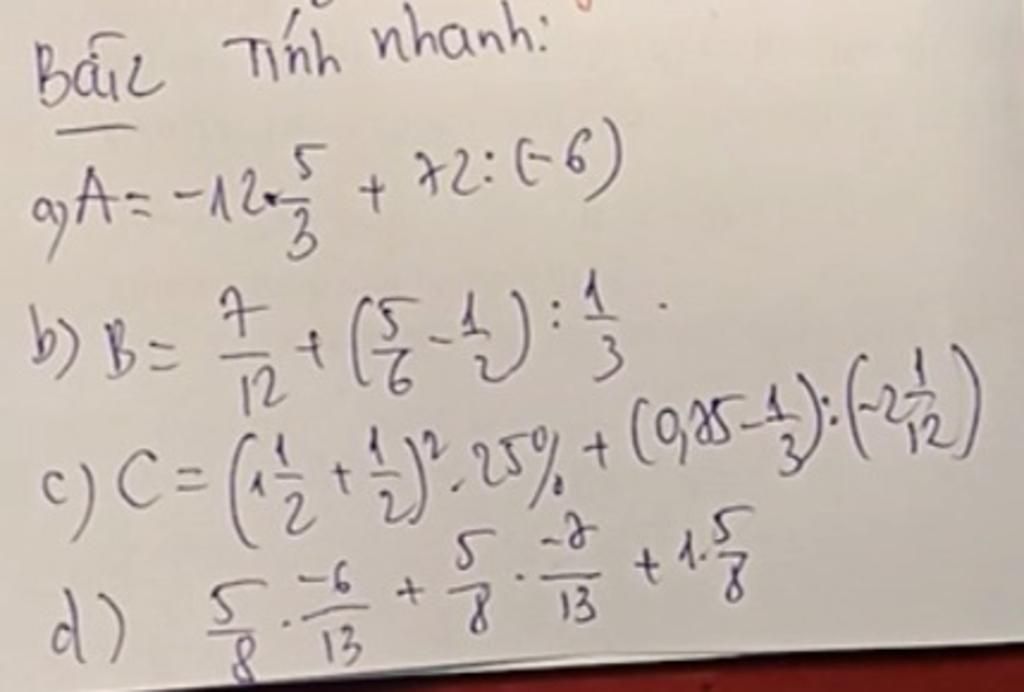 Bài 2 Tính nhanh:
a) A = -12 \cdot \frac{5}{3} + 72 : (-6)
b) B = \frac{7}{12} + (\frac{5}{6} - \frac{1}{2}) : \frac{1}{3}.
c) C = (1\frac{1}{2} + \frac{1}{2})^2 . 25% + (0,75 - \frac{1}{3}) : (-2\frac{1}{12})
d) \frac{5}{8} . \frac{-6}{13} + \frac{5}{8} . \frac{-7}{13} + 1.\frac{5}{8}